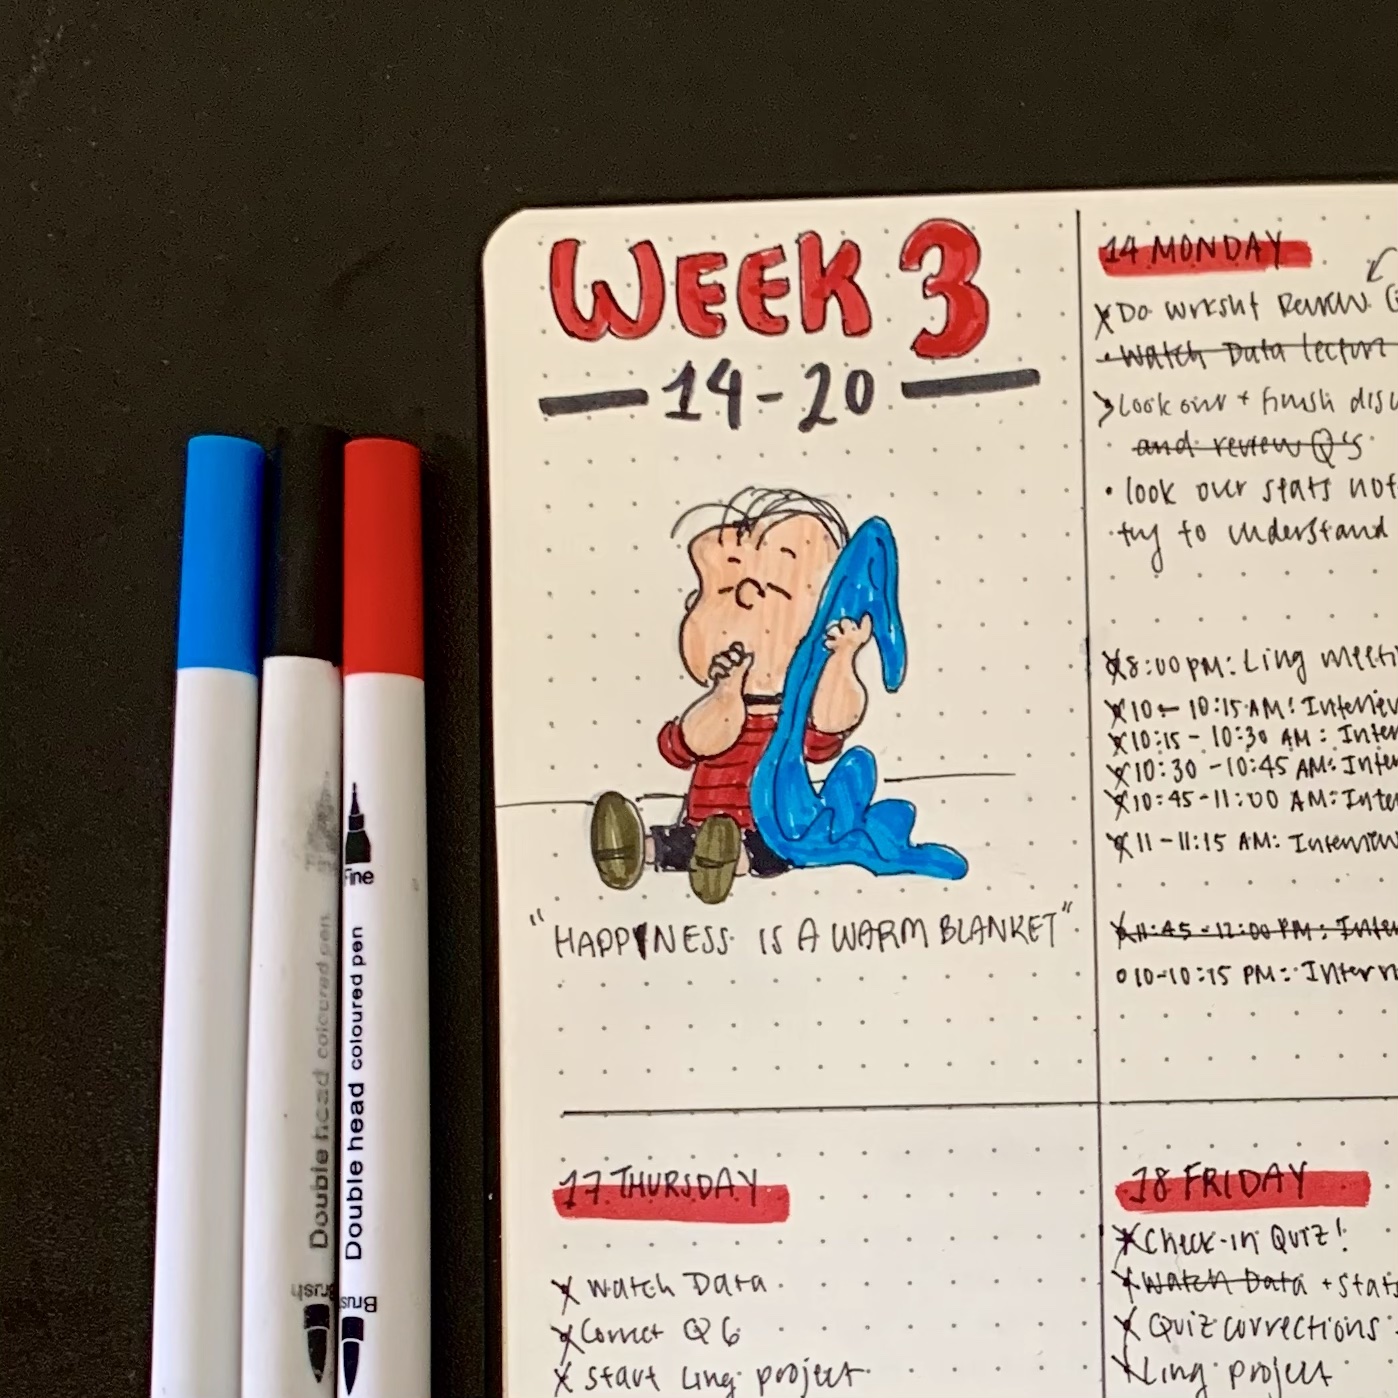 WEEK 3
14-20
"HAPPINESS IS A WARM BLANKET"
14 MONDAY
Do wrksht Review
Watch Data lecture
Look over + finish disc
and review Q's
look over stats not
try to understand
8:00 PM: Ling meeti
10 - 10:15 AM: Interview
10:15 - 10:30 AM: Inter
10:30 - 10:45 AM: Inte
10:45 - 11:00 AM: Inte
11 - 11:15 AM: Interview
11:45 - 12:00 PM: Inter
10-10:15 PM: Intern
17 THURSDAY
Watch Data
Correct Q6
Start Ling project
18 FRIDAY
Check-in Quiz!
Watch Data + Stats
Quiz corrections
Ling project
Fine
Double head coloured pen
Brush
Double head coloured pen
Brush